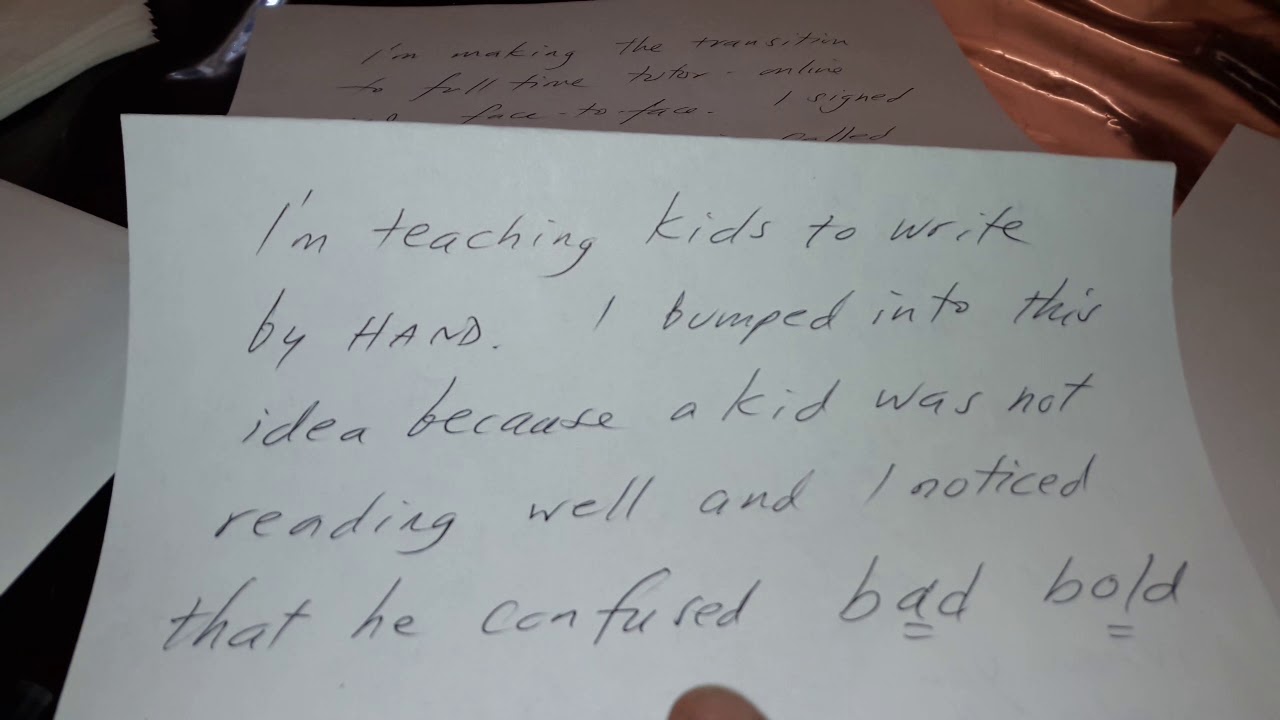 I'm making the transition
to full time tutor - online
face-to-face. I signed
called
I'm teaching kids to write
by HAND. I bumped into this
idea because a kid was not
reading well and I noticed
that he confused bad bold